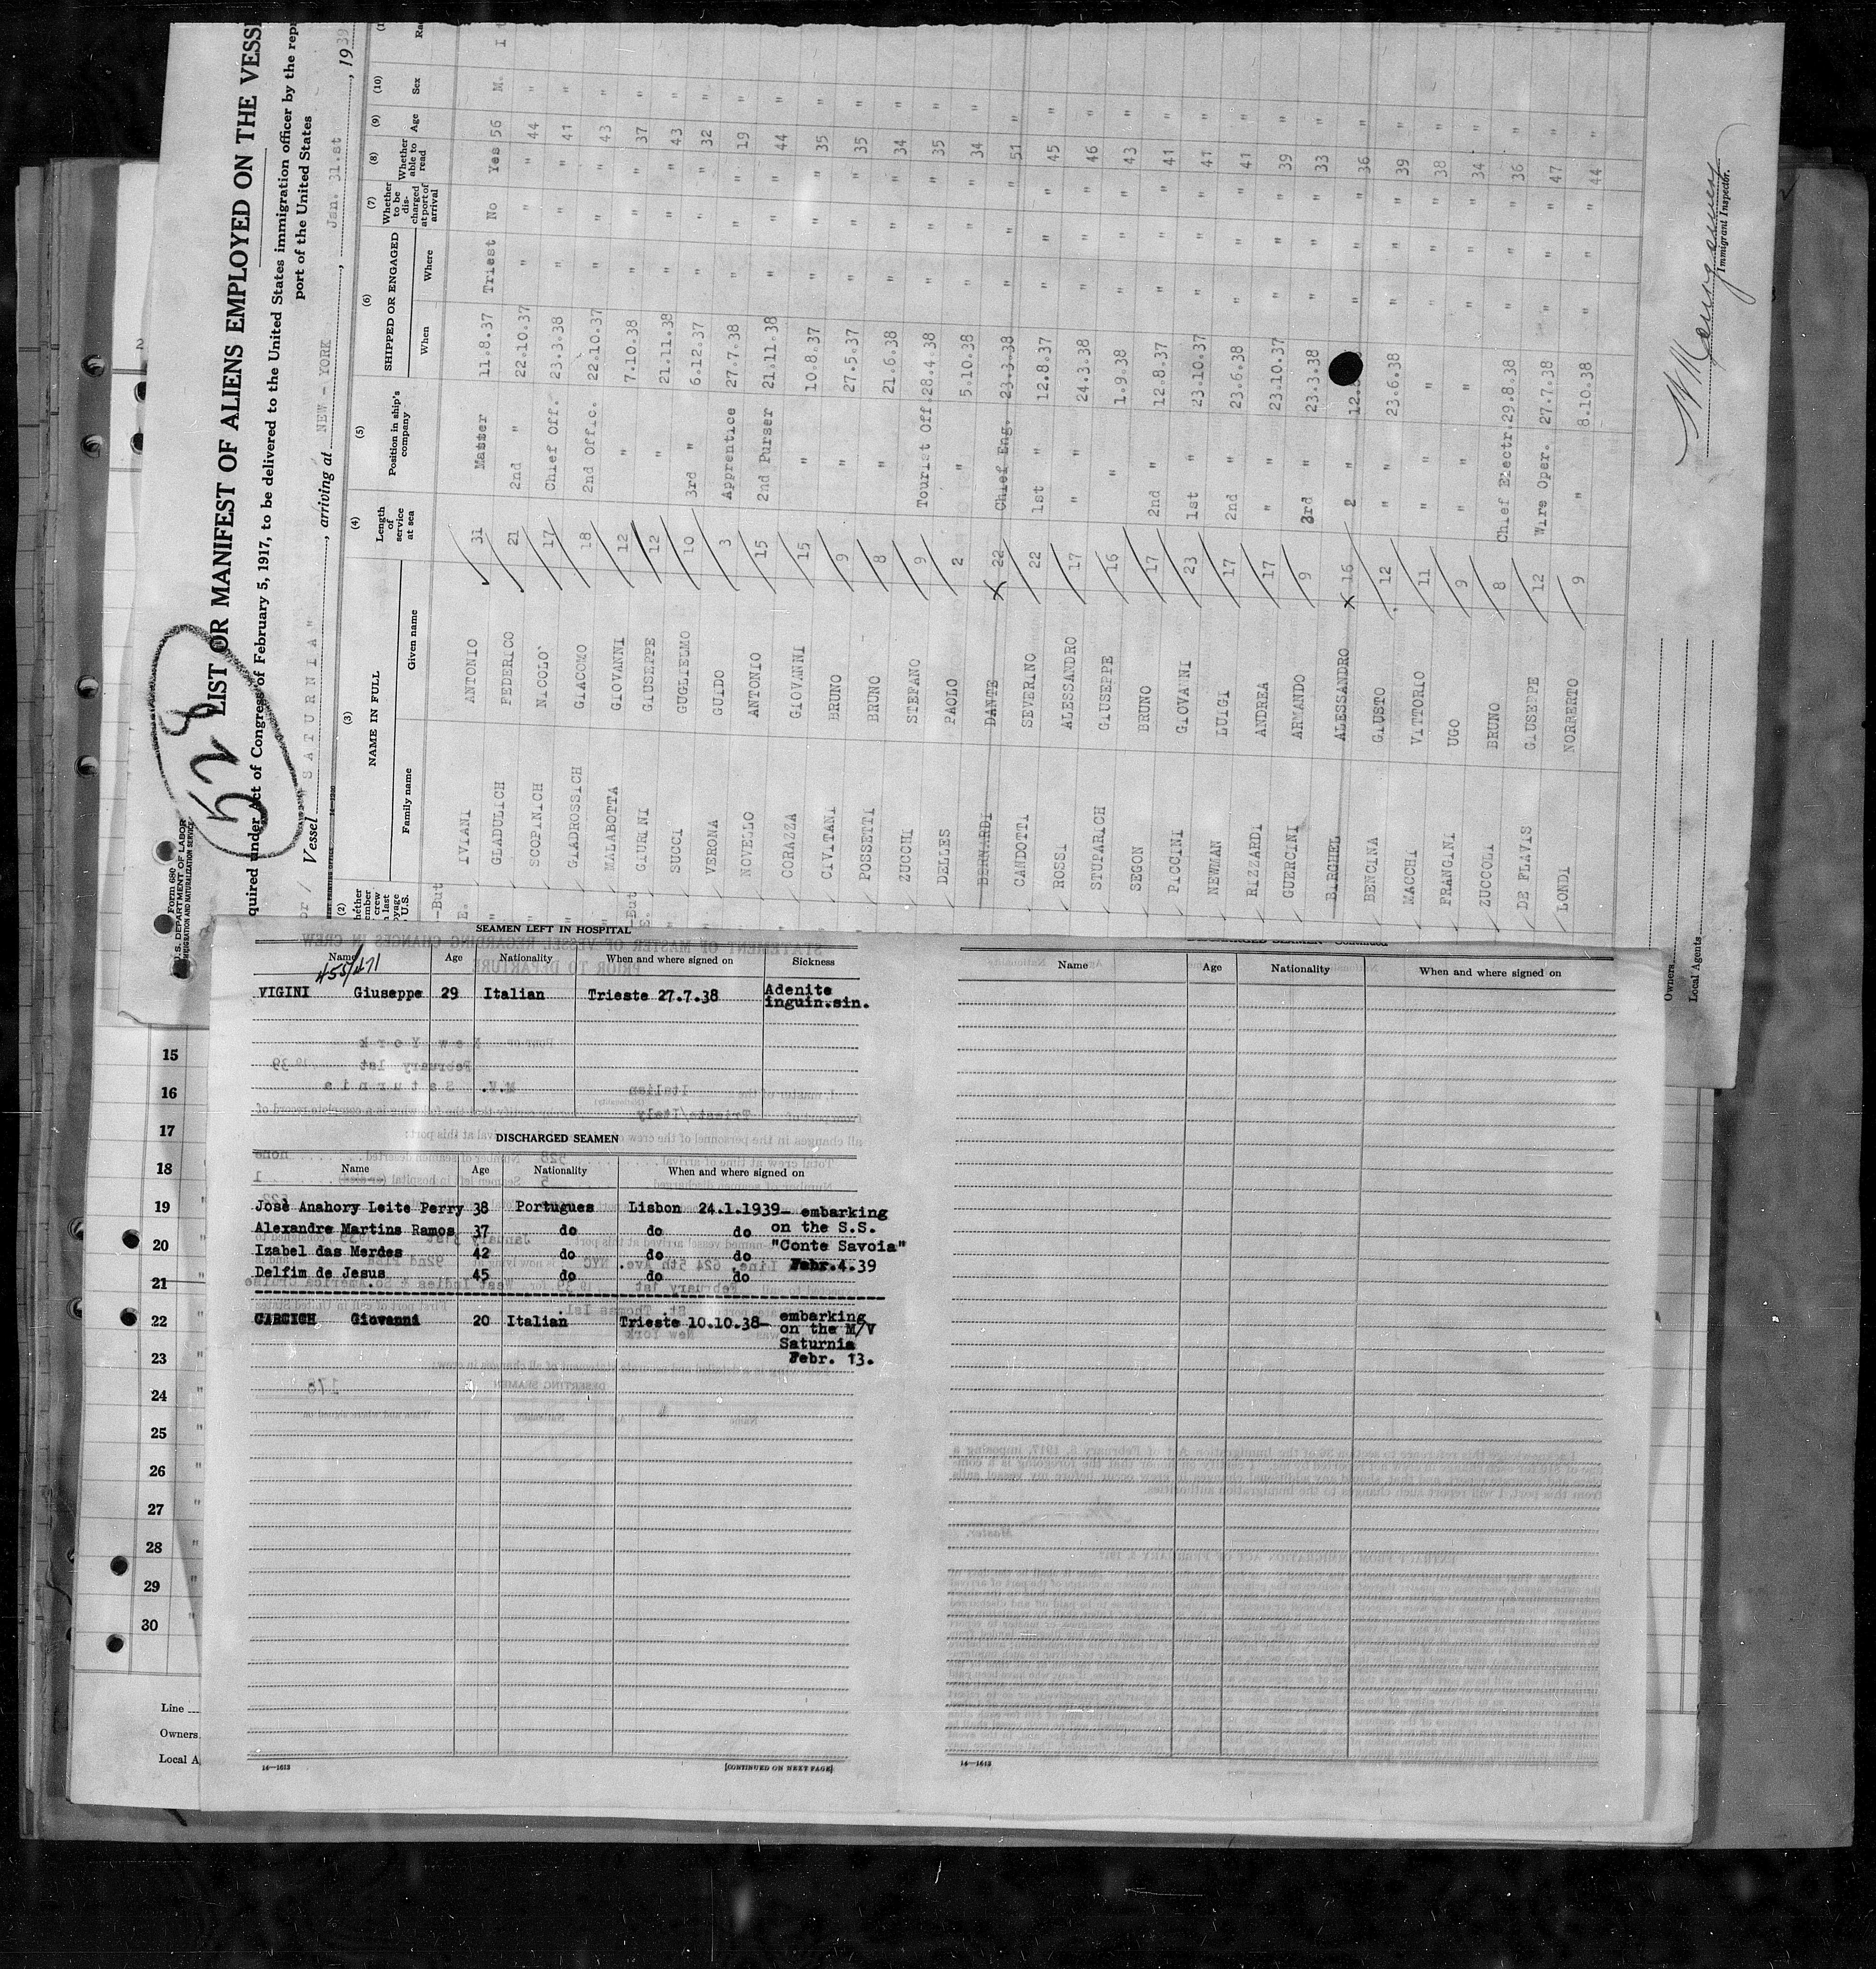 528
Form 680
U.S. DEPARTMENT OF LABOR
IMMIGRATION AND NATURALIZATION SERVICE
LIST OR MANIFEST OF ALIENS EMPLOYED ON THE VESS
quired under Act of Congress of February 5, 1917, to be delivered to the United States immigration officer by the rep
port of the United States
Vessel "SATURNIA", arriving at NEW - YORK, Jan. 31.st, 1939
(2) (3) NAME IN FULL (4) Length of service at sea (5) Position in ship's company (6) SHIPPED OR ENGAGED (7) Whether to be discharged at port of arrival (8) Whether able to read (9) Age (10) Sex
Family name Given name When Where
IVIANI ANTONIO 31 Master 11.8.37 Triest No Yes 56 M.
GLADULICH FEDERICO 21 2nd " 22.10.37 " " " 44 "
SCOPINICH NICOLO' 17 Chief Off. 23.3.38 " " " 41 "
GIADROSSICH GIACOMO 18 2nd Offic. 22.10.37 " " " 43 "
MALABOTTA GIOVANNI 12 " 7.10.38 " " " 37 "
GIURINI GIUSEPPE 12 " 21.11.38 " " " 43 "
SUCCI GUGLIELMO 10 3rd " 6.12.37 " " " 32 "
VERONA GUIDO 3 Apprentice 27.7.38 " " " 19 "
NOVELLO ANTONIO 15 2nd Purser 21.11.38 " " " 44 "
CORAZZA GIOVANNI 15 " 10.8.37 " " " 35 "
CIVITANI BRUNO 9 " 27.5.37 " " " 35 "
POSSETTI BRUNO 8 " 21.6.38 " " " 34 "
ZUCCHI STEFANO 9 Tourist Off. 28.4.38 " " " 35 "
DELLES PAOLO 2 " 5.10.38 " " " 34 "
BERNARDI DANTE 22 Chief Eng. 23.3.38 " " " 51 "
CANDOTTI SEVERINO 22 1st " 12.8.37 " " " 45 "
ROSSI ALESSANDRO 17 " " 24.3.38 " " " 46 "
STUPARICH GIUSEPPE 16 " 1.9.38 " " " 43 "
SEGON BRUNO 17 2nd " 12.8.37 " " " 41 "
PICCINI GIOVANNI 23 1st " 23.10.37 " " " 41 "
NEWMAN LUIGI 17 2nd " 23.6.38 " " " 41 "
RIZZARDI ANDREA 17 " " 23.10.37 " " " 39 "
GUERCINI ARMANDO 9 3rd " 23.3.38 " " " 33 "
BIRGHEL ALESSANDRO 16 2 " 12. " " " 36 "
BENCINA GIUSTO 12 " " 23.6.38 " " " 39 "
MACCHI VITTORIO 11 " " " " " " 38 "
FRANCINI UGO 9 " " " " " " 34 "
ZUCCOLI BRUNO 8 Chief Electr. 29.8.38 " " " 36 "
DE FLAVIS GIUSEPPE 12 Wire Oper. 27.7.38 " " " 47 "
LONDI NORBERTO 9 " 8.10.38 " " " 44 "
Immigrant Inspector.
Owners
Local Agents
SEAMEN LEFT IN HOSPITAL
Name Age Nationality When and where signed on Sickness
455/471
VIGINI Giuseppe 29 Italian Trieste 27.7.38 Adenite
inguin.sin.
DISCHARGED SEAMEN
Name Age Nationality When and where signed on
Josè Anahory Leite Perry 38 Portugues Lisbon 24.1.1939— embarking
Alexandre Martins Ramos 37 do do do on the S.S.
Izabel das Merdes 42 do do do "Conte Savoia"
Delfim de Jesus 45 do do do Febr.4.39
CARCICH Giovanni 20 Italian Trieste 10.10.38— embarking
on the M/V
Saturnia
Febr. 13.
14—1613
[CONTINUED ON NEXT PAGE]
Name Age Nationality When and where signed on
14—1613
15
16
17
18
19
20
21
22
23
24
25
26
27
28
29
30
Line
Owners
Local A